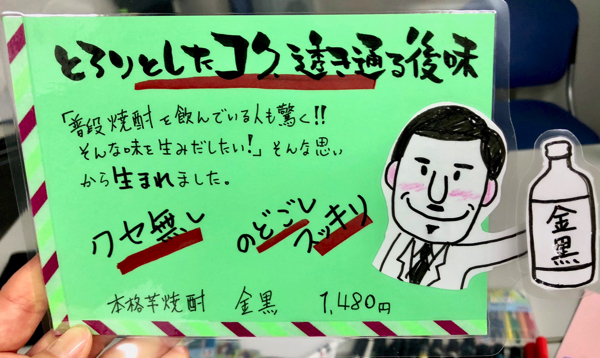 とろりとしたコク、透き通る後味
「普段焼酎を飲んでいる人も驚く!!
そんな味を生みだしたい!」そんな思い
から生まれました。
クセ無し
のどごしスッキリ
本格芋焼酎 金黒 1,480円
金黒